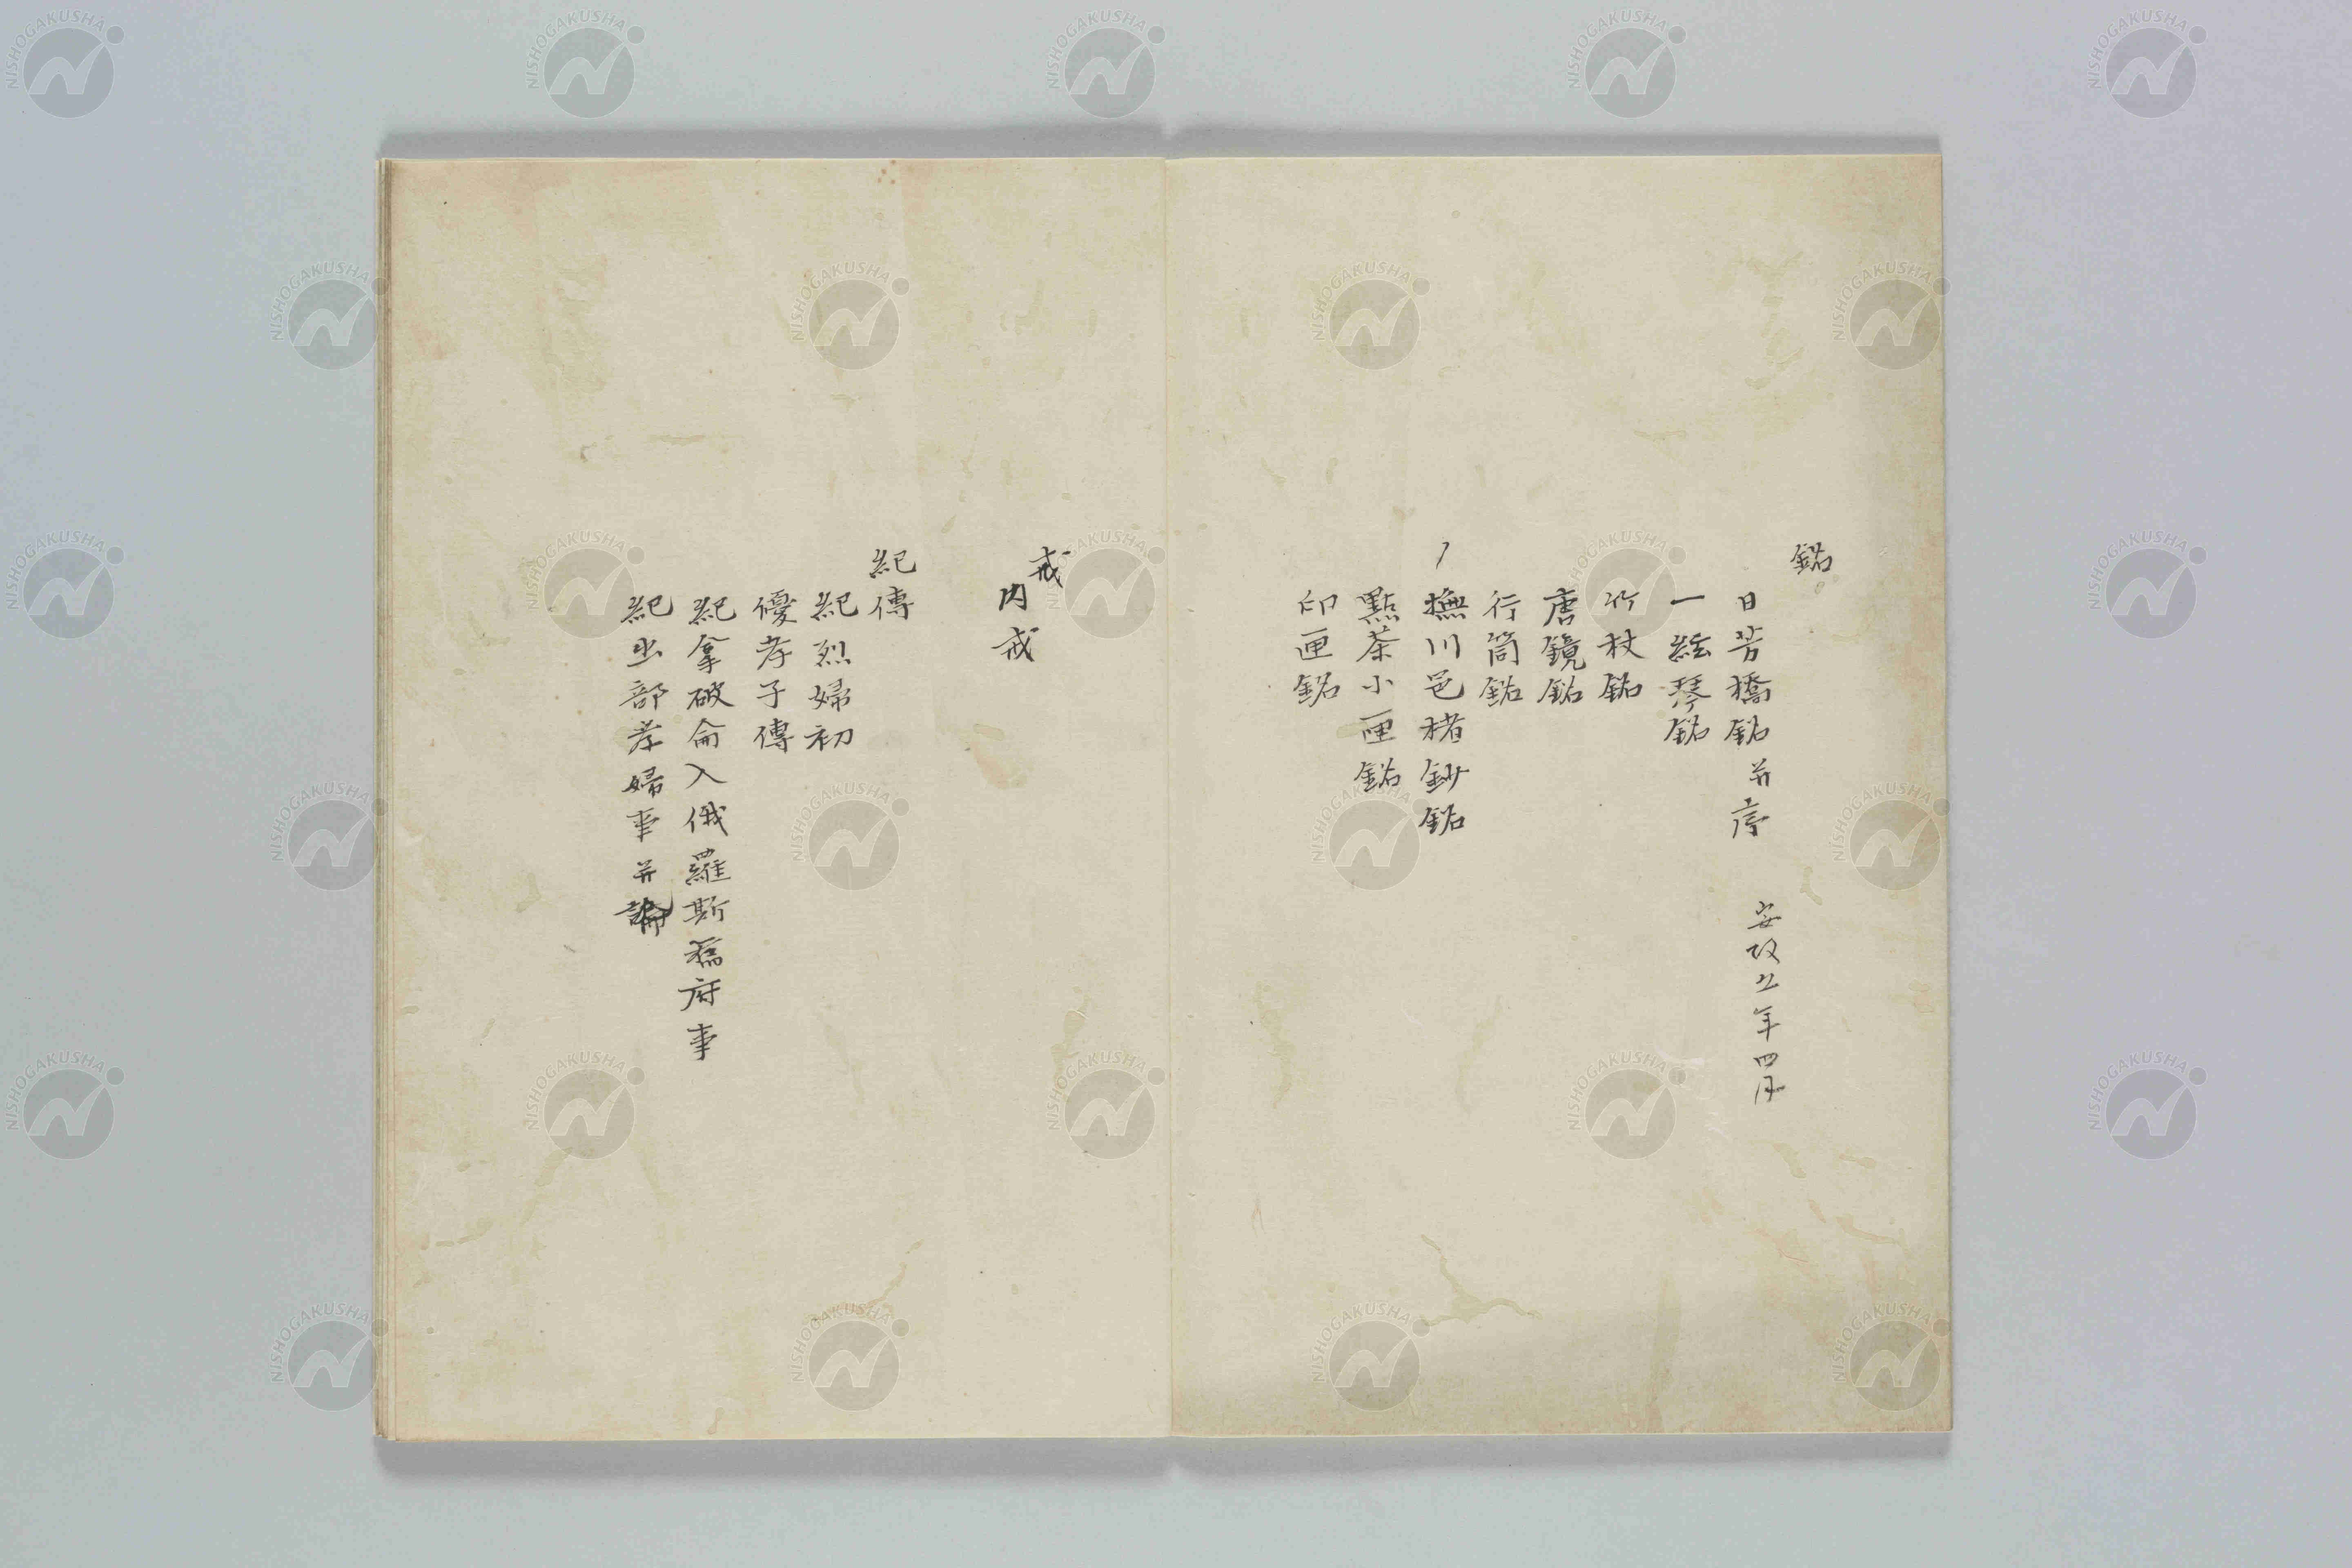 銘
日芳橋銘并序　安政五年四月
一絃琴銘
竹杖銘
唐鏡銘
行筒銘
撫川邑楮鈔銘
點茶小匣銘
印匣銘
戒
内戒
紀傳
紀烈婦初
優孝子傳
紀拿破侖入俄羅斯舊府事
紀 部孝婦事并論
NISHOGAKUSHA